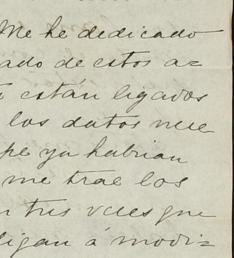 Me he dedicado
ado de estos a=
están ligados
los datos nue
pe ya habrian
me trae los
tres veces que
ligan á modi=